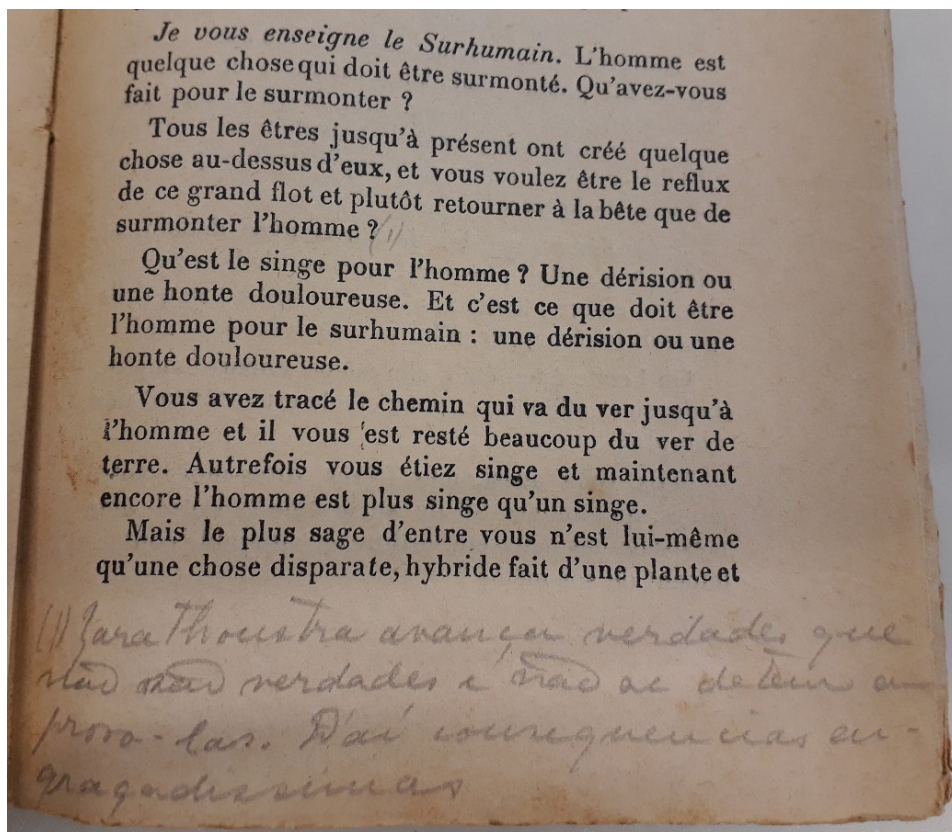 Je vous enseigne le Surhumain. L'homme est
quelque chose qui doit être surmonté. Qu'avez-vous
fait pour le surmonter ?
Tous les êtres jusqu'à présent ont créé quelque
chose au-dessus d'eux, et vous voulez être le reflux
de ce grand flot et plutôt retourner à la bête que de
surmonter l'homme ? (1)
Qu'est le singe pour l'homme ? Une dérision ou
une honte douloureuse. Et c'est ce que doit être
l'homme pour le surhumain : une dérision ou une
honte douloureuse.
Vous avez tracé le chemin qui va du ver jusqu'à
l'homme et il vous est resté beaucoup du ver de
terre. Autrefois vous étiez singe et maintenant
encore l'homme est plus singe qu'un singe.
Mais le plus sage d'entre vous n'est lui-même
qu'une chose disparate, hybride fait d'une plante et
(1) Zarathoustra avança verdades que
não são verdades e não se detem em
prova-las. D'aí consequencias en-
graçadissimas